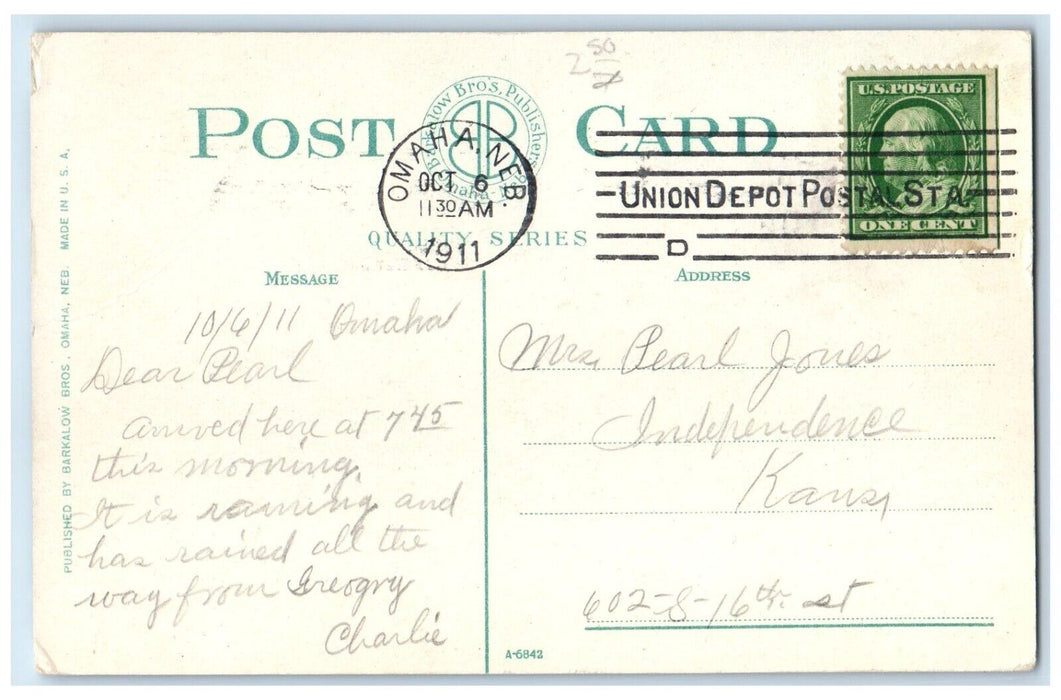 2 50
POST CARD
Barkalow Bro's, Publishers
Omaha
OMAHA, NEB.
OCT 6
11 30 AM
1911
U.S. POSTAGE
ONE CENT
UNION DEPOT POSTAL STA.
D
QUALITY SERIES
MESSAGE
ADDRESS
PUBLISHED BY BARKALOW BROS. OMAHA, NEB. MADE IN U. S. A.
10/6/11 Omaha
Dear Pearl
arrived here at 7 45
this morning.
It is raining and
has rained all the
way from Greogry
Charlie
Mrs. Pearl Jones
Independence
Kans,
602-S-16th. st
A-6842